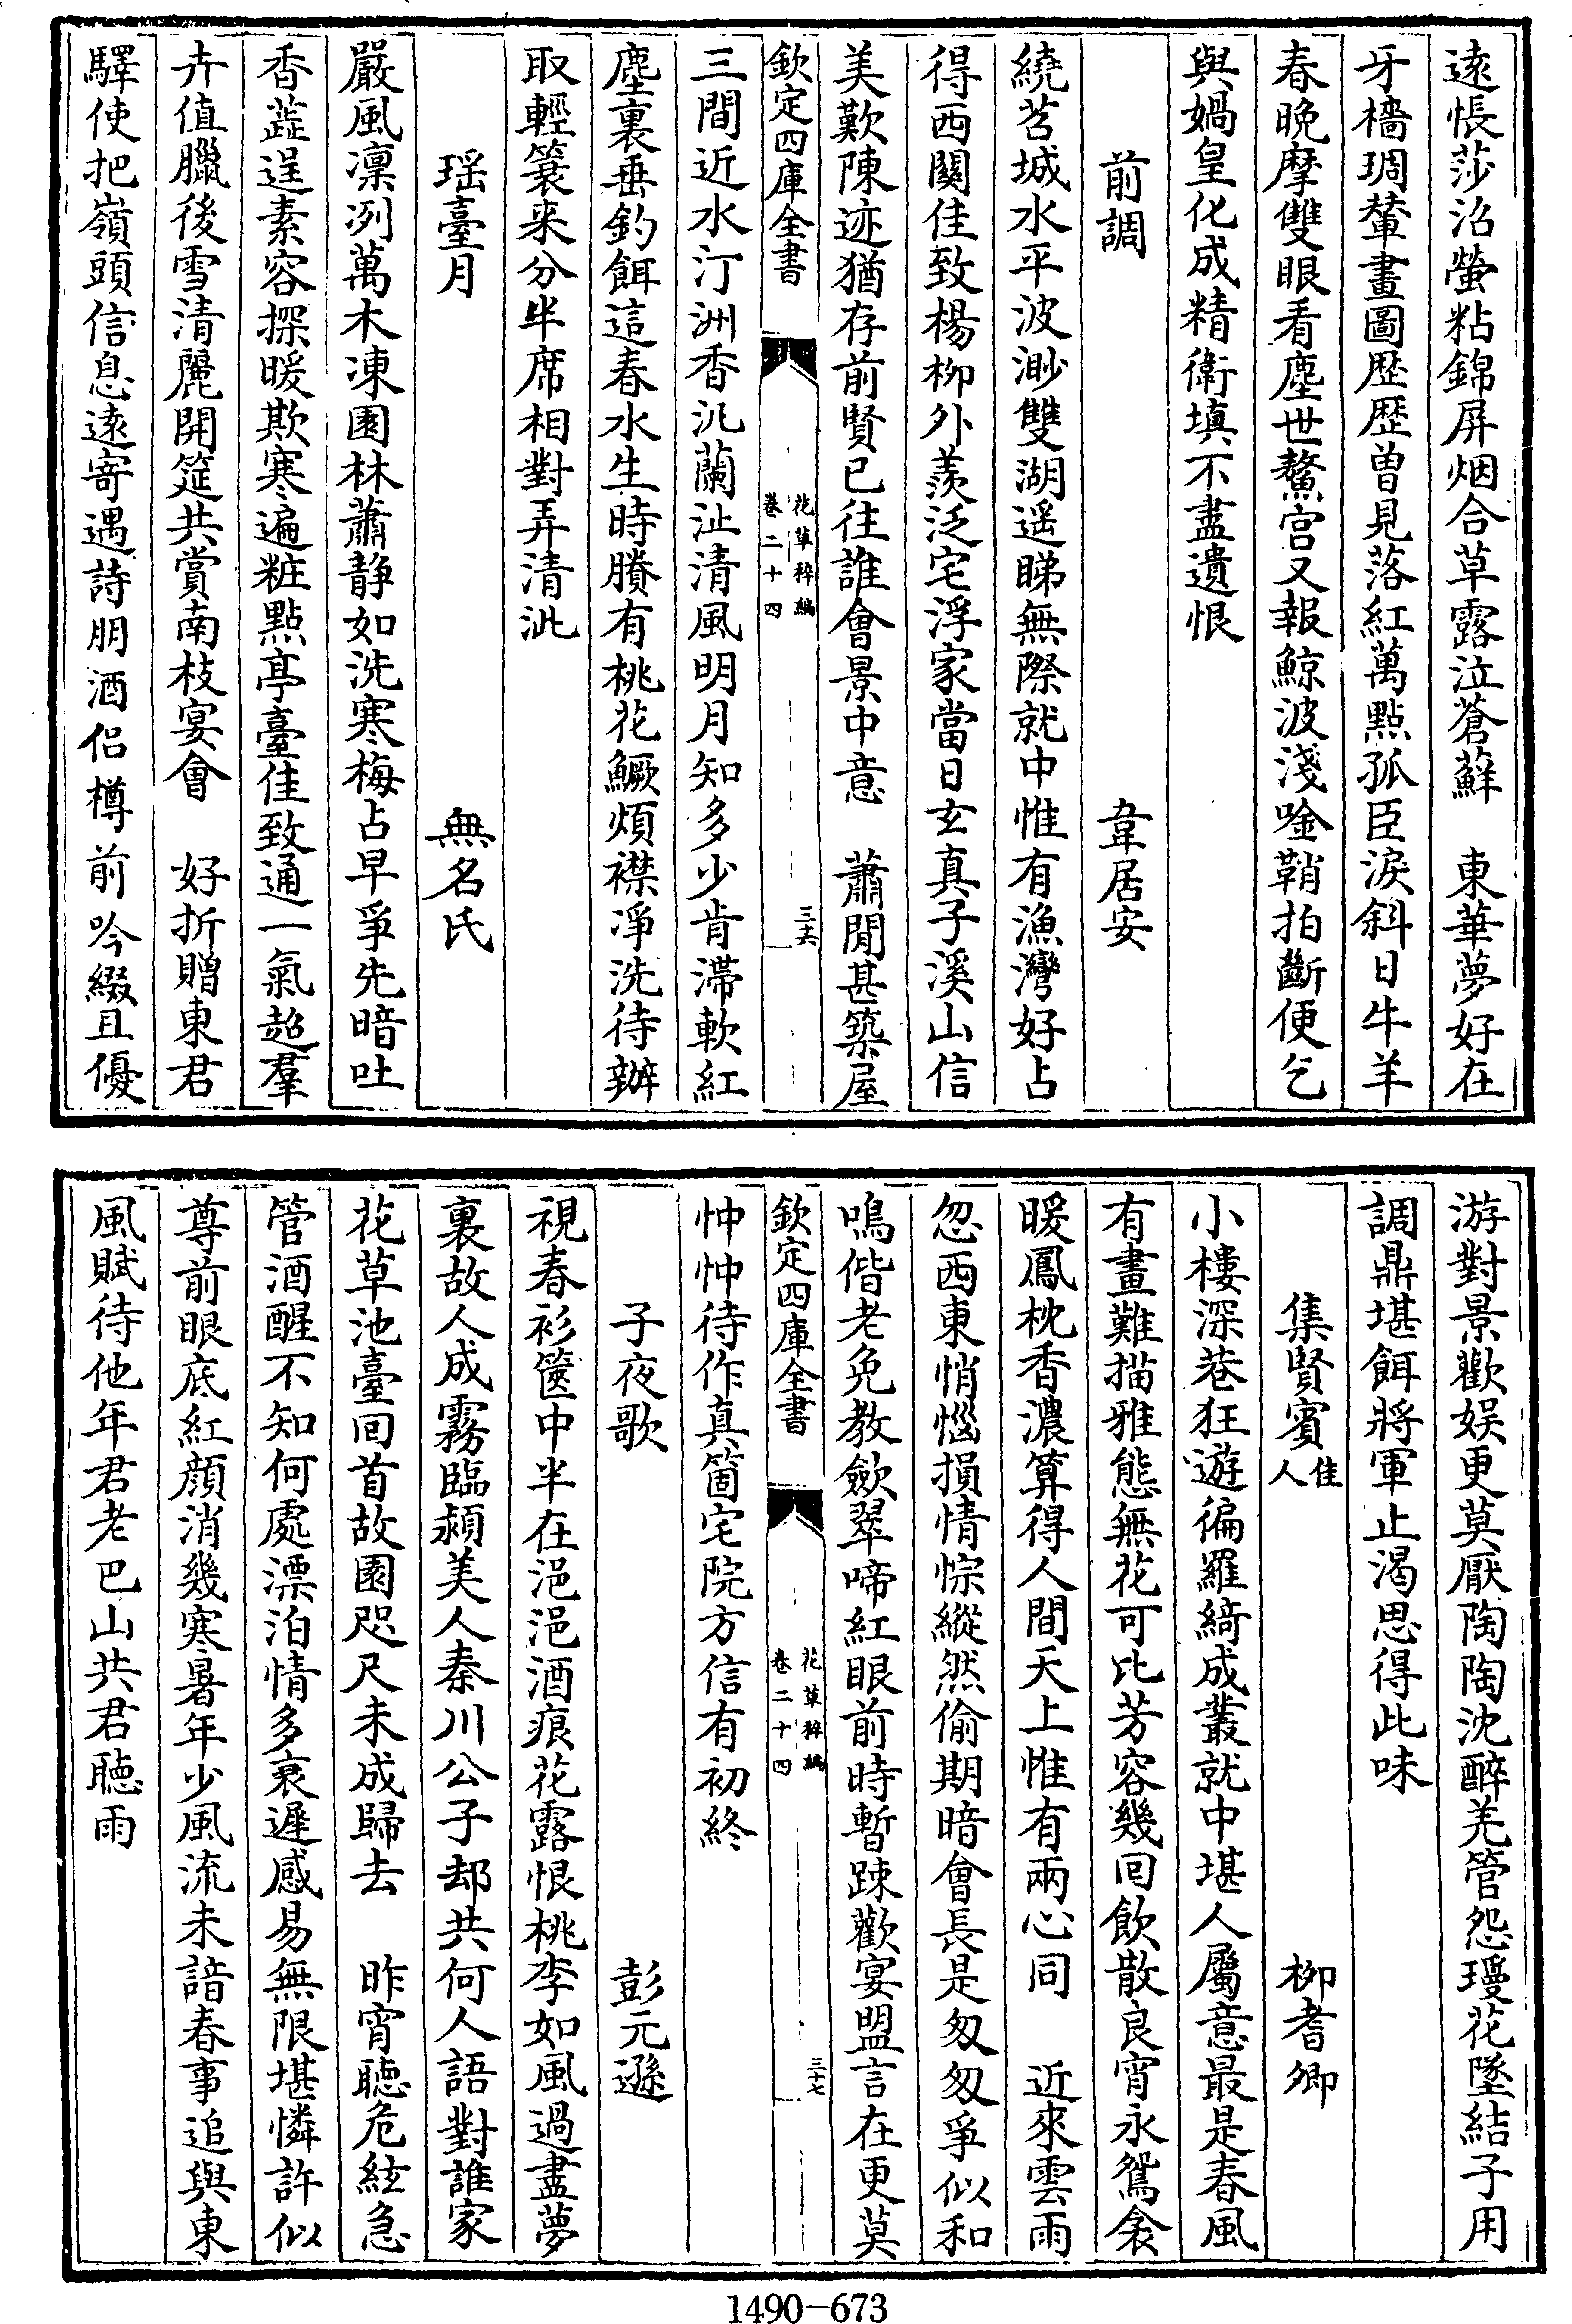 遠悵莎沼螢粘錦屏烟合草露泣蒼蘚　東華夢好在
牙檣琱輦畫圖歴歴曽見落紅萬點孤臣淚斜日牛羊
春晚摩雙眼看塵世鰲宫又報鯨波淺唫鞘拍斷便乞
與媧皇化成精衛填不盡遺恨
前調　韋居安
繞苕城水平波渺雙湖遥睇無際就中惟有漁灣好占
得西闗佳致楊柳外羨泛宅浮家當日玄真子溪山信
美歎陳迹猶存前賢已往誰會景中意　蕭閒甚築屋
欽定四庫全書　花草稡編　卷二十四　三十六
三間近水汀洲香汎蘭沚清風明月知多少肯滯軟紅
塵裏垂釣餌這春水生時賸有桃花鱖煩襟淨洗待辦
取輕簑来分半席相對弄清泚
瑶臺月　無名氏
嚴風凛冽萬木凍園林蕭静如洗寒梅占早爭先暗吐
香蕋逞素容探暖欺寒遍粧點亭臺佳致通一氣超羣
卉值臘後雪清麗開筵共賞南枝宴會　好折贈東君
驛使把嶺頭信息遠寄遇詩朋酒侣樽前吟綴且優
游對景歡娱更莫厭陶陶沈醉羌管怨瓊花墜結子用
調鼎堪餌將軍止渴思得此味
集賢賓佳人　柳耆卿
小樓深巷狂遊徧羅綺成叢就中堪人屬意最是春風
有畫難描雅態無花可比芳容幾囘飲散良宵永鴛衾
暖鳳枕香濃算得人間天上惟有兩心同　近來雲雨
忽西東悄惱損情悰縱然偷期暗會長是匆匆爭似和
鳴偕老免教斂翠啼紅眼前時暫踈歡宴盟言在更莫
欽定四庫全書　花草稡編　卷二十四　三十七
忡忡待作真箇宅院方信有初終
子夜歌　彭元遜
視春衫篋中半在浥浥酒痕花露恨桃李如風過盡夢
裏故人成霧臨潁美人秦川公子却共何人語對誰家
花草池臺囘首故園咫尺未成歸去　昨宵聽危絃急
管酒醒不知何處漂泊情多衰遲感易無限堪憐許似
尊前眼底紅顔消幾寒暑年少風流未諳春事追與東
風賦待他年君老巴山共君聽雨
1490-673